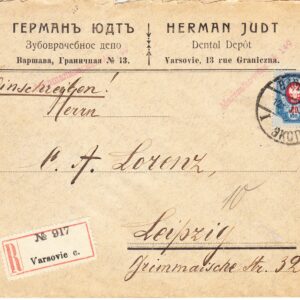 ГЕРМАНЪ ЮДТЪ
Зубоврачебное депо
Варшава, Граничная № 13.
HERMAN JUDT
Dental Depôt
Varsovie, 13 rue Graniczna.
Einschreiben!
Herrn
C. A. Lorenz,
10
Leipzig
Grimmaische Str. 32
R
№ 917
Varsovie c.
ЭКСП
1